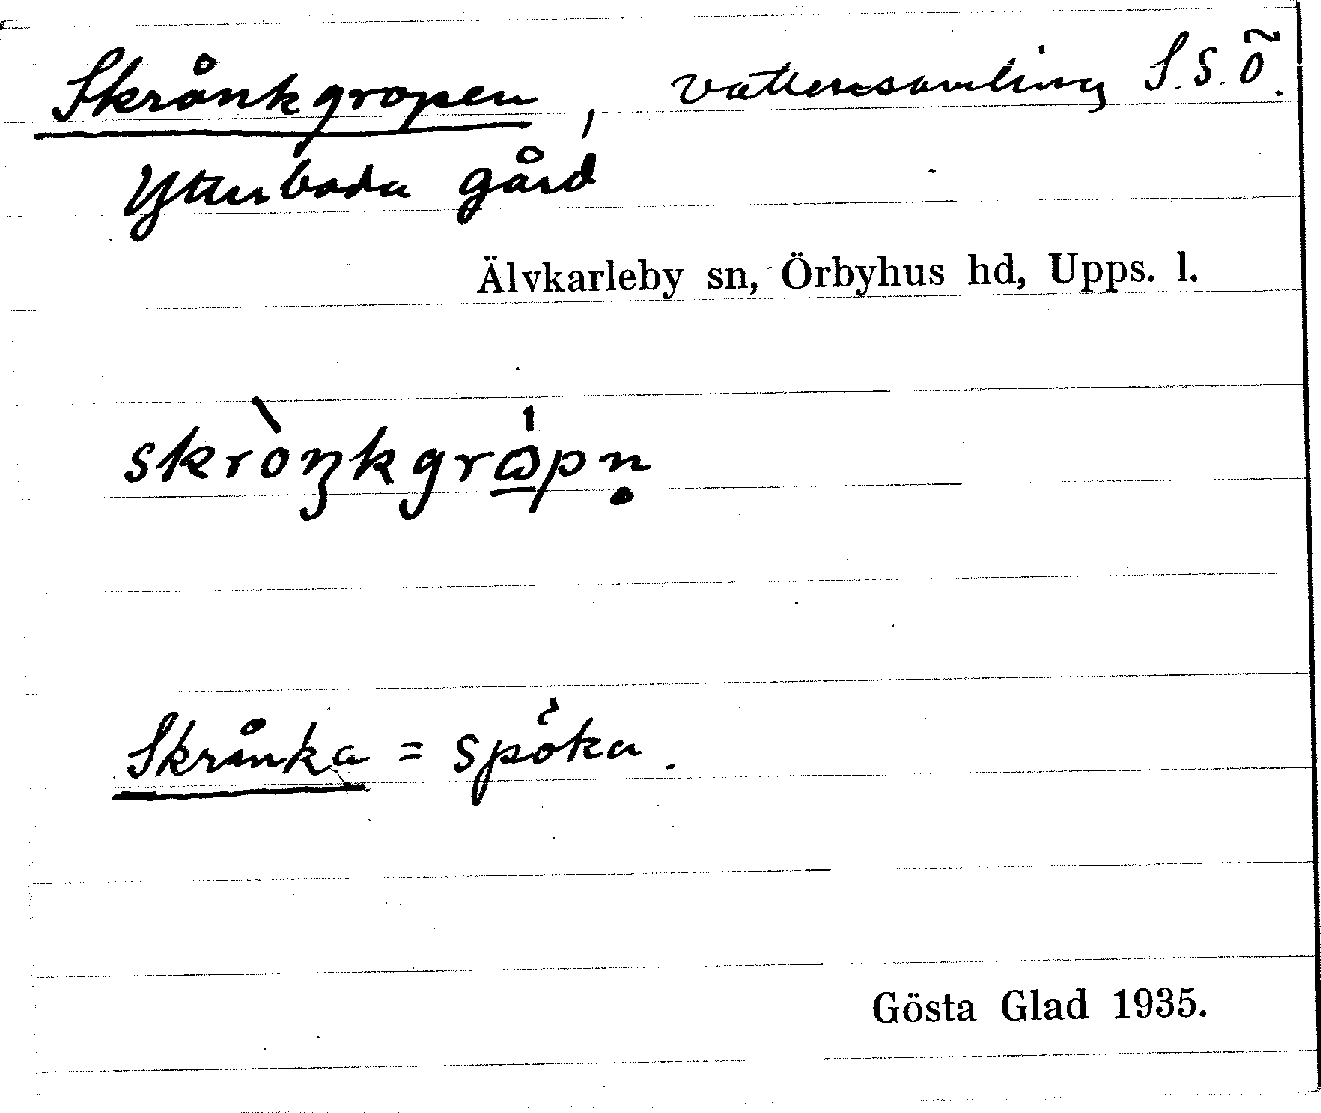 Skrånkgropen, vattensamling S.S.Ö.
Ytterboda gård
Älvkarleby sn, Örbyhus hd, Upps. l.
skròŋkgrɷ́pn̥
Skrånka = spöka.
Gösta Glad 1935.